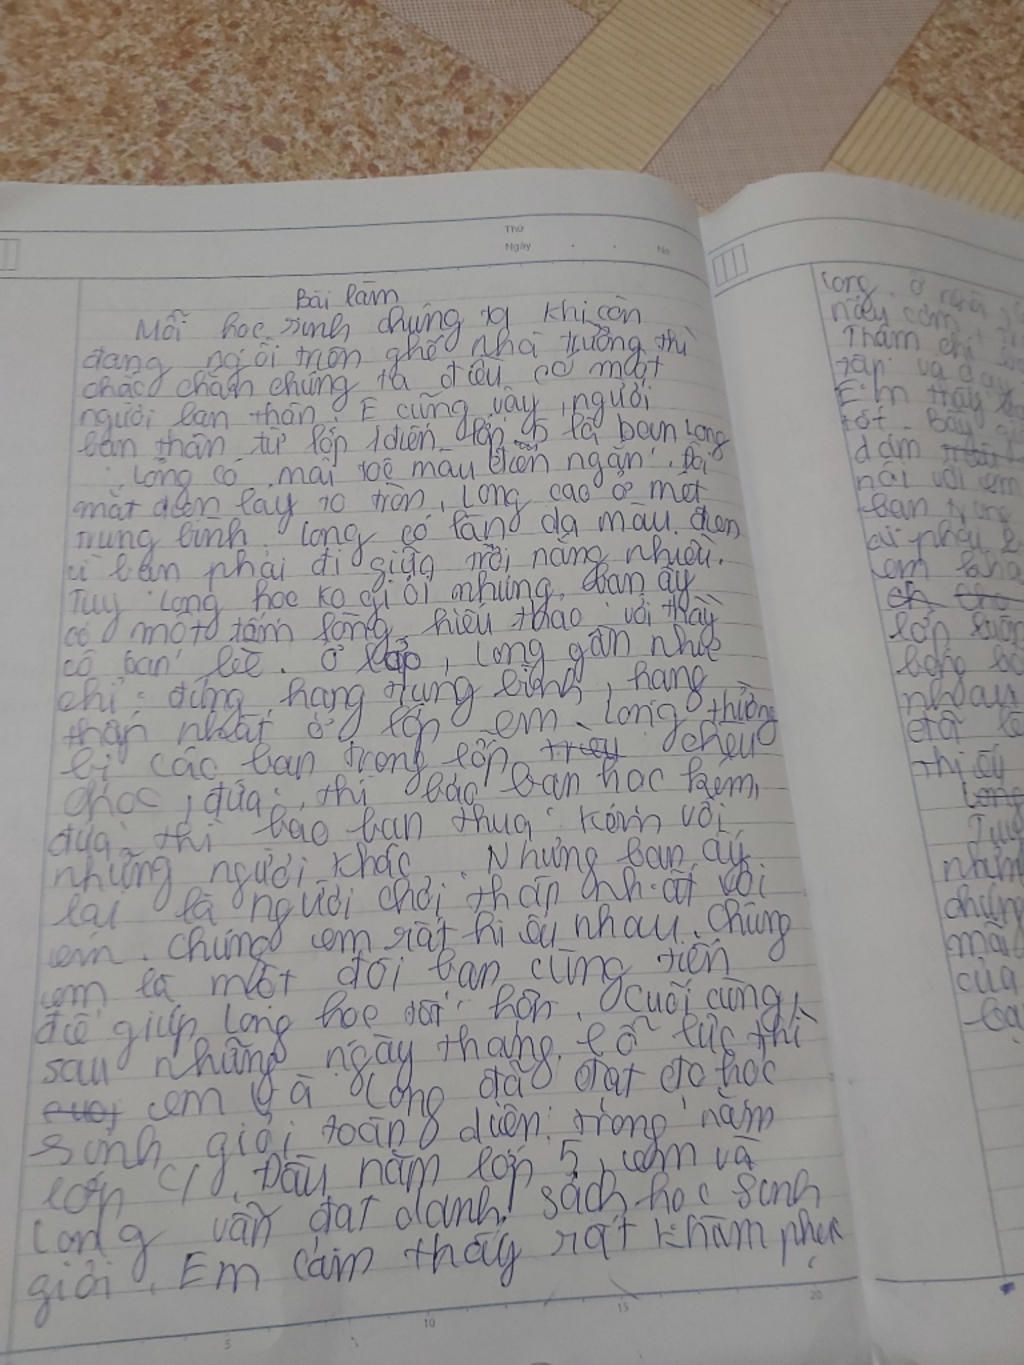 Thứ
Ngày
No
Bài làm
Mỗi học sinh chúng ta khi còn
đang ngồi trên ghế nhà trường thì
chắc chắn chúng ta điều có một
người bạn thân. E cũng vậy, người
bạn thân từ lớp 1 đến lớp 5 là bạn Long
Long có mái tóc màu đen ngắn. Đôi
mắt đen láy to tròn, Long cao ở mét
trung bình. Long có làn da màu đen
vì bạn phải đi giữa trời nắng nhiều.
Tuy Long học ko giỏi nhưng bạn ấy
có một tấm lòng hiếu thảo với thầy
cô bạn bè. Ở lớp, Long gần như
chỉ đứng hạng trung bình, hạng
thấp nhất ở lớp em. Long thường
bị các bạn trong lớp chêu
chọc, đứa thì bảo bạn học kém,
đứa thì bảo bạn thua kém với
những người khác. Nhưng bạn ấy
lại là người chơi thân nhất với
em. Chúng em rất hiểu nhau. Chúng
em là một đôi bạn cùng tiến
để giúp Long học tốt hơn. Cuối cùng,
sau những ngày tháng lỗ lực thì
em và Long đã đạt đc học
sinh giỏi toàn diện trong năm
lớp 4. Đầu năm lớp 5, em và
Long vẫn đạt danh sách học sinh
giỏi. Em cảm thấy rất khâm phục
5 10 15 20
Long. Ở
này cảm
Thậm chí
tập và dạy
Em thấy
tốt. Bây
dám
nói với em
bạn trong
lớp
nhau
thị ấy
Long
Tuy
chúng
mãi
của